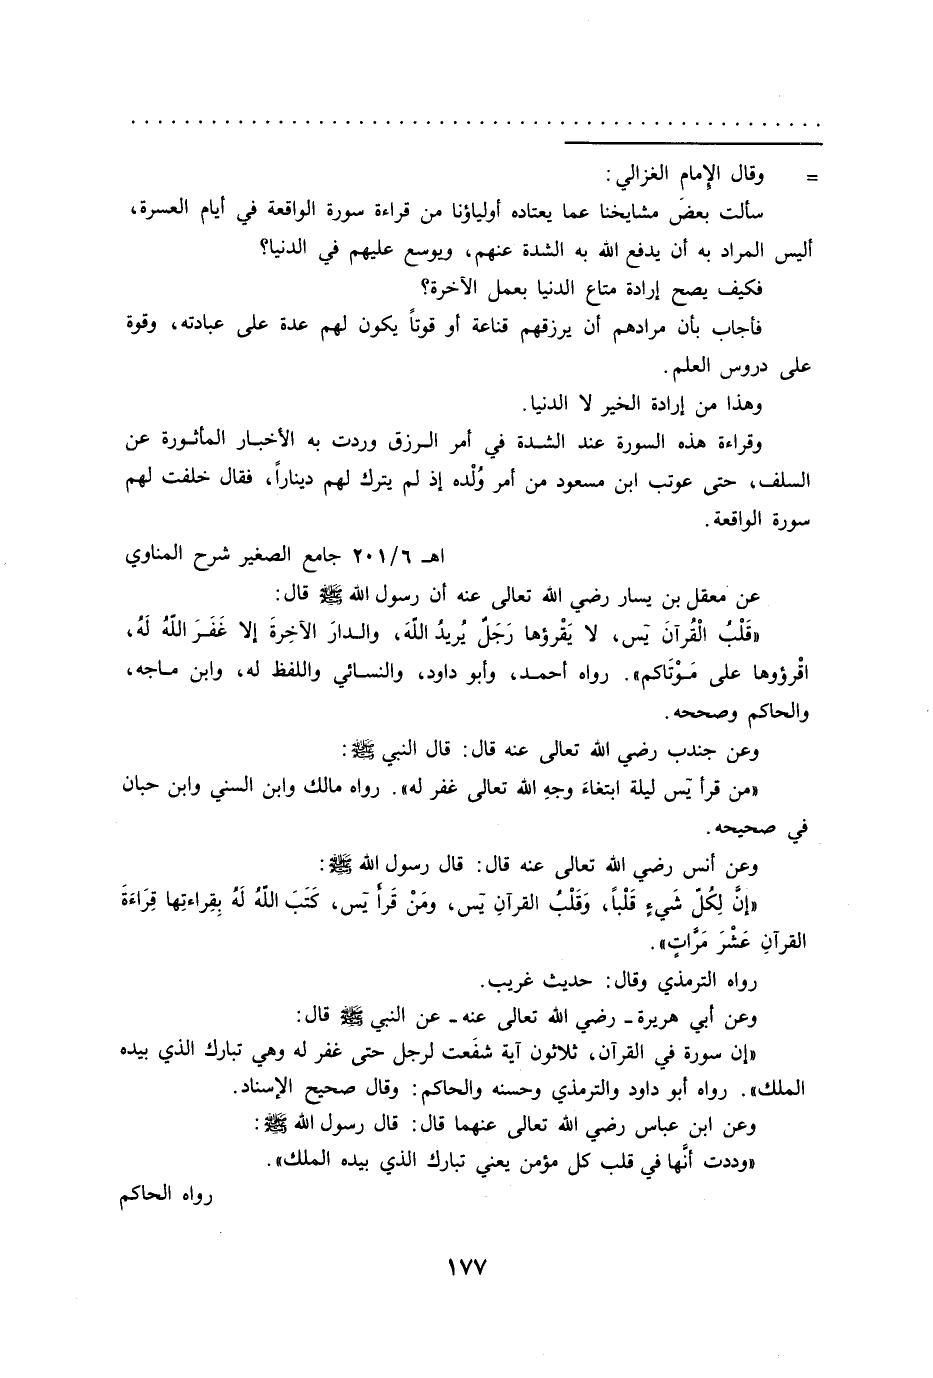 . . . . . . . . . . . . . . . . . . . . . . . . . . . . . . . . . . . . . . . . . . . . . . . . . . . .
= وقال الإمام الغزالي:
سألت بعضَ مشايخنا عما يعتاده أولياؤنا من قراءة سورة الواقعة في أيام العسرة،
أليس المراد به أن يدفع الله به الشدة عنهم، ويوسع عليهم في الدنيا؟
فكيف يصح إرادة متاع الدنيا بعمل الآخرة؟
فأجاب بأن مرادهم أن يرزقهم قناعة أو قوتاً يكون لهم عدة على عبادته، وقوة
على دروس العلم.
وهذا من إرادة الخير لا الدنيا.
وقراءة هذه السورة عند الشدة في أمر الرزق وردت به الأخبار المأثورة عن
السلف، حتى عوتب ابن مسعود من أمر وُلْده إذ لم يترك لهم ديناراً، فقال خلفت لهم
سورة الواقعة.
اهـ ٢٠١/٦ جامع الصغير شرح المناوي
عن معقل بن يسار رضي الله تعالى عنه أن رسول الله ﷺ قال:
«قَلْبُ الْقُرآنَ يَس، لا يَقْرؤها رَجَلٌ يُريدُ اللّهَ، والدارَ الآخِرةَ إلا غَفَرَ اللّهُ لَهُ،
اقْرؤوها على مَوْتَاكم». رواه أحمد، وأبو داود، والنسائي واللفظ له، وابن ماجه،
والحاكم وصححه.
وعن جندب رضي الله تعالى عنه قال: قال النبي ﷺ:
«من قرأ يَس ليلة ابتغاءَ وجهِ الله تعالى غفر له». رواه مالك وابن السني وابن حبان
في صحيحه.
وعن أنس رضي الله تعالى عنه قال: قال رسول الله ﷺ:
«إنَّ لِكُلّ شَيءٍ قَلْباً، وَقَلْبُ القرآنِ يَس، ومَنْ قَرأ يَس، كَتَبَ اللّهُ لَهُ بِقِراءتِها قِرَاءَةَ
القرآنِ عَشْرَ مَرَّاتٍ».
رواه الترمذي وقال: حديث غريب.
وعن أبي هريرة ـ رضي الله تعالى عنه ـ عن النبي ﷺ قال:
«إن سورة في القرآن، ثلاثون آية شفَعت لرجل حتى غفر له وهي تبارك الذي بيده
الملك». رواه أبو داود والترمذي وحسنه والحاكم: وقال صحيح الإسناد.
وعن ابن عباس رضي الله تعالى عنهما قال: قال رسول الله ﷺ:
«وددت أنَّها في قلب كل مؤمن يعني تبارك الذي بيده الملك».
رواه الحاكم
١٧٧